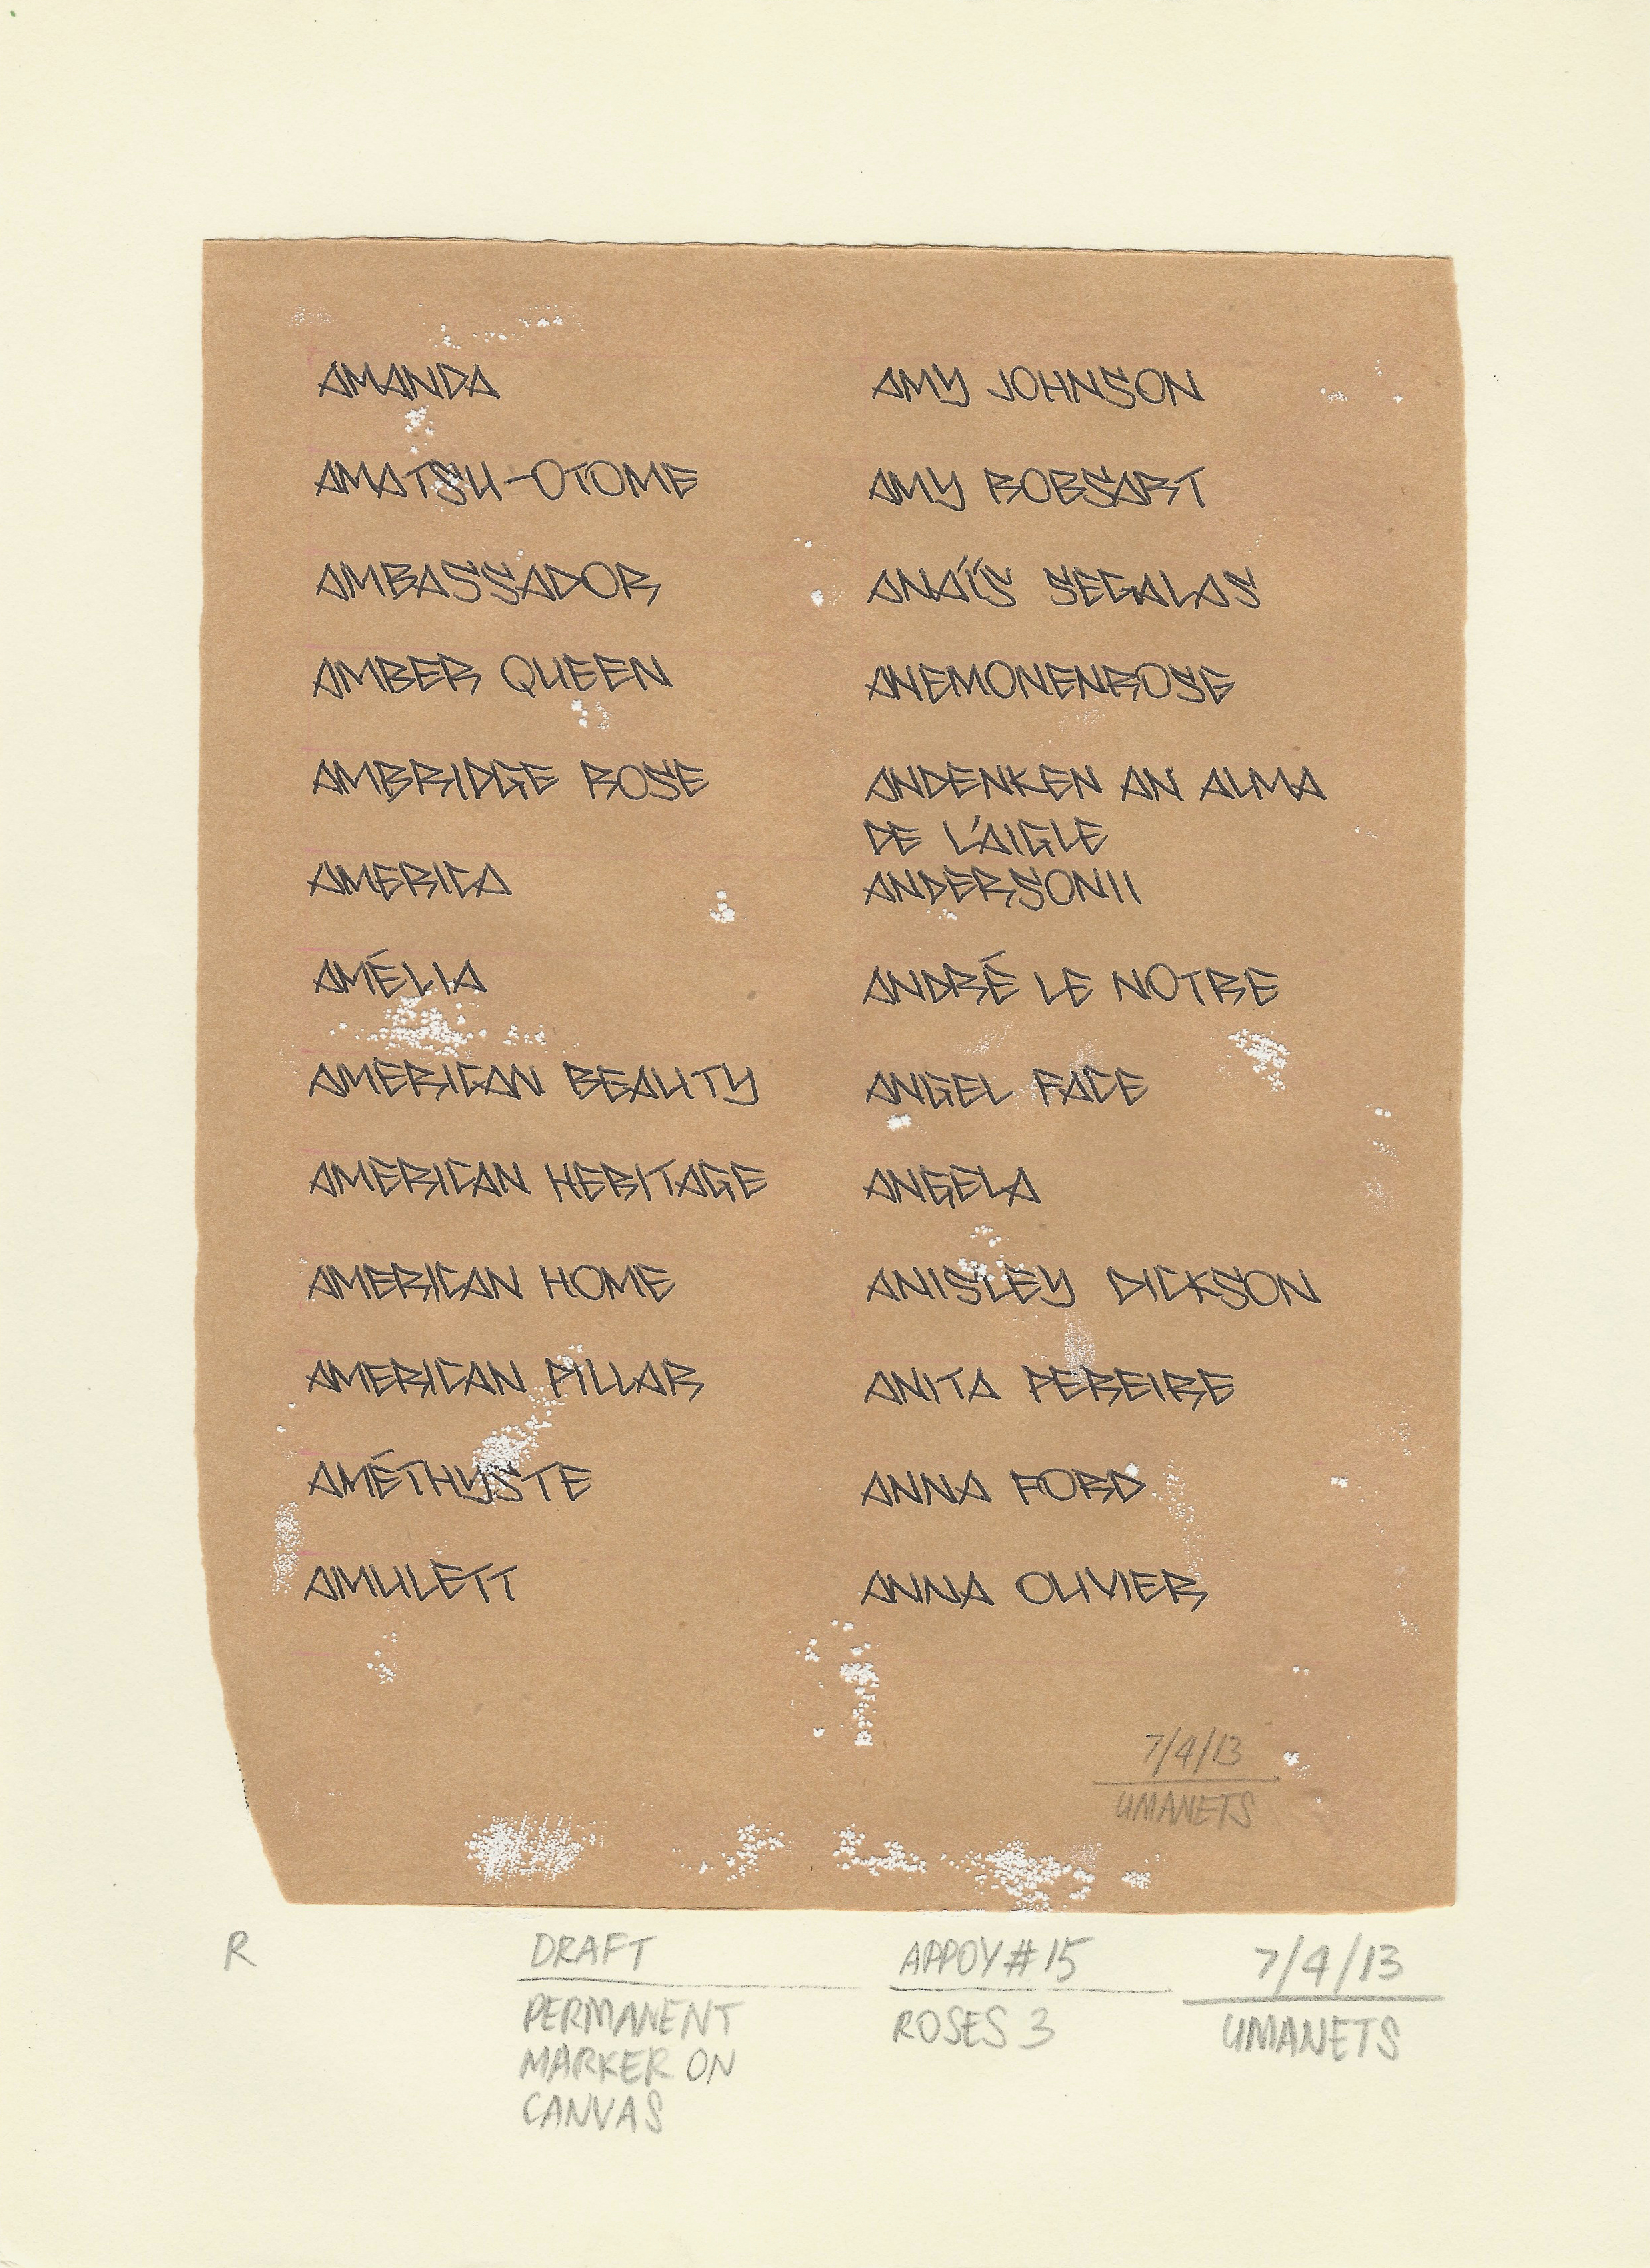 AMANDA
AMATSU-OTOME
AMBASSADOR
AMBER QUEEN
AMBRIDGE ROSE
AMERICA
AMÉLIA
AMERICAN BEAUTY
AMERICAN HERITAGE
AMERICAN HOME
AMERICAN PILLAR
AMÉTHYSTE
AMULETT
AMY JOHNSON
AMY ROBSART
ANAÏS SEGALAS
ANEMONENROSE
ANDENKEN AN ALMA
DE L'AIGLE
ANDERSONII
ANDRÉ LE NOTRE
ANGEL FACE
ANGELA
ANISLEY DICKSON
ANITA PEREIRE
ANNA FORD
ANNA OLIVIER
7/4/13
UMANETS
R
DRAFT
PERMANENT
MARKER ON
CANVAS
APPOY#15
ROSES 3
7/4/13
UMANETS